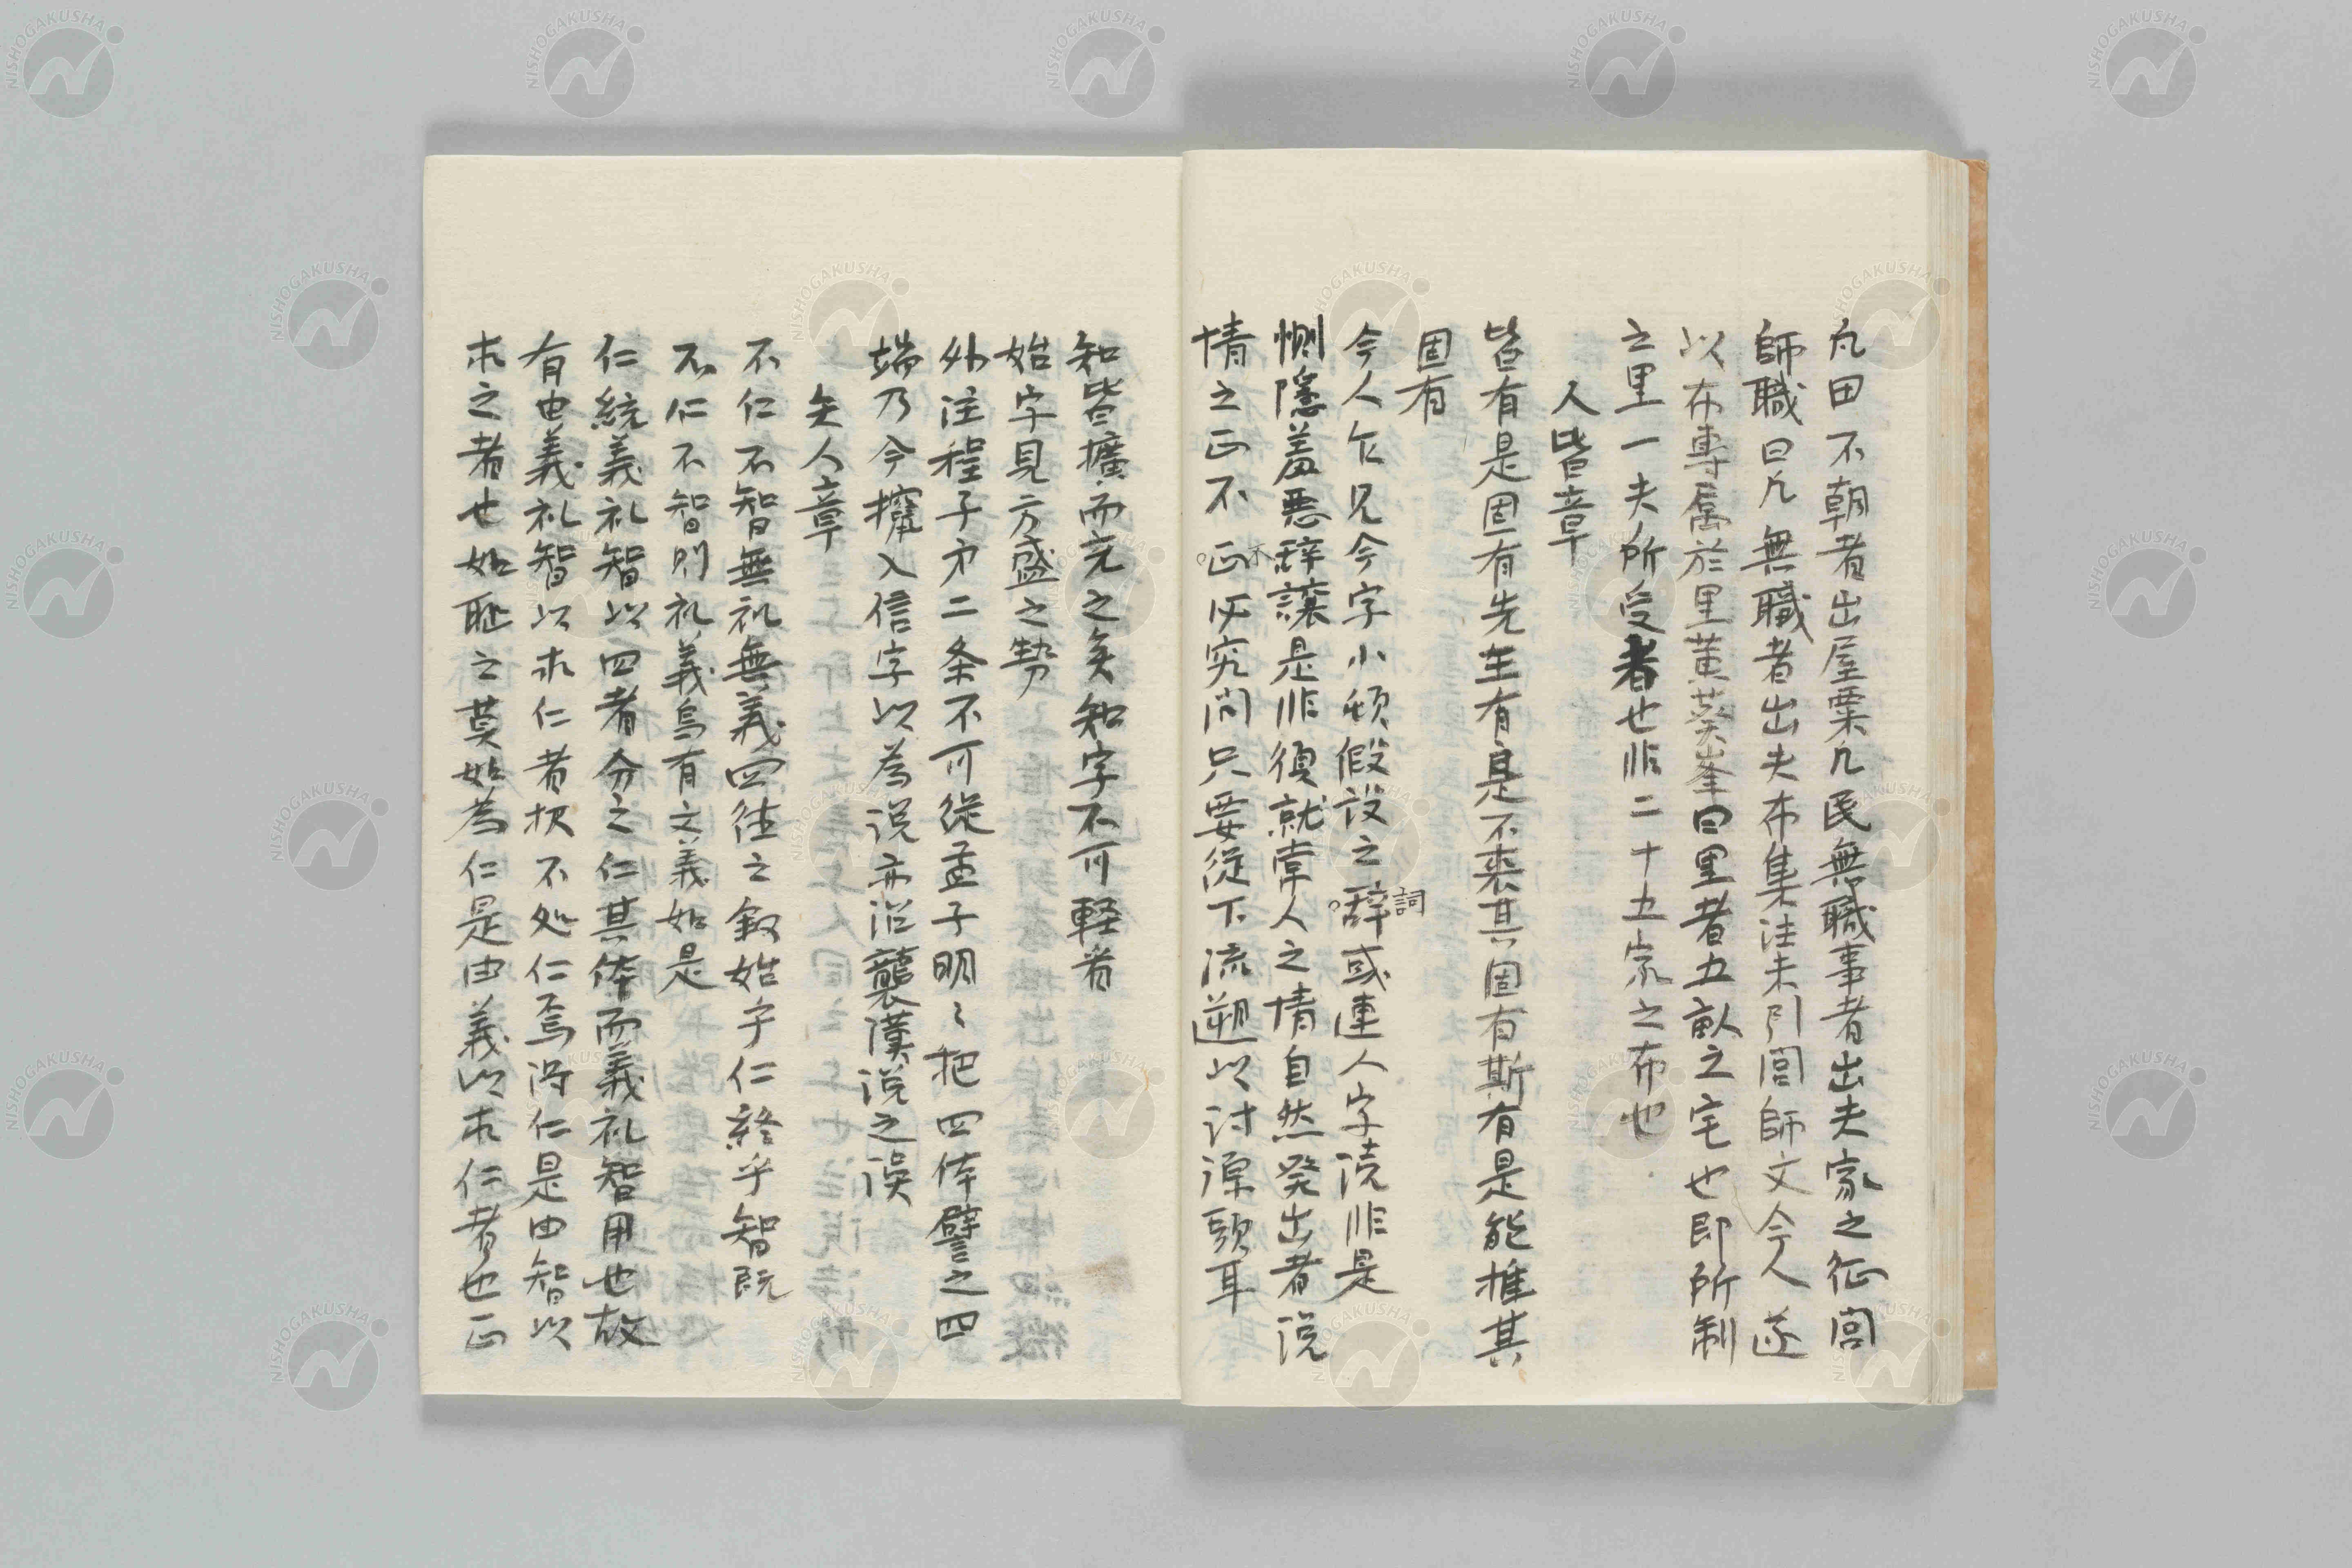 凡田不朝者出屋粟凡民無職事者出夫家之征閭
師職曰凡無職者出夫布集注未引閭師文今人遂
以布專属於里黄葵峯曰里者五畝之宅也即所制
之里一夫所受者也非二十五家之布也
人皆章
皆有是固有先王有是不喪其固有斯有是能推其
固有
今人乍見今字小頓假設之辞詞或連人字読非是
惻隠羞悪辞讓是非須就常人之情自然発出者説
情之正不正不必究問只要従下流遡以討源頭耳
知皆擴而充之矣知字不可軽看
始字見方盛之勢
外注程子才二条不可従孟子明〻把四体譬之四
端乃今攛入信字以為説亦沿襲漢説之誤
矢人章
不仁不智無礼無義四往之叙始乎仁終乎智既
不仁不智則礼義烏有文義如是
仁統義礼智以四者分之仁其体而義礼智用也故
有由義礼智以求仁者択不処仁焉得仁是由智以
求之者也如恥之莫如為仁是由義以求仁者也正
NISHOGAKUSHA